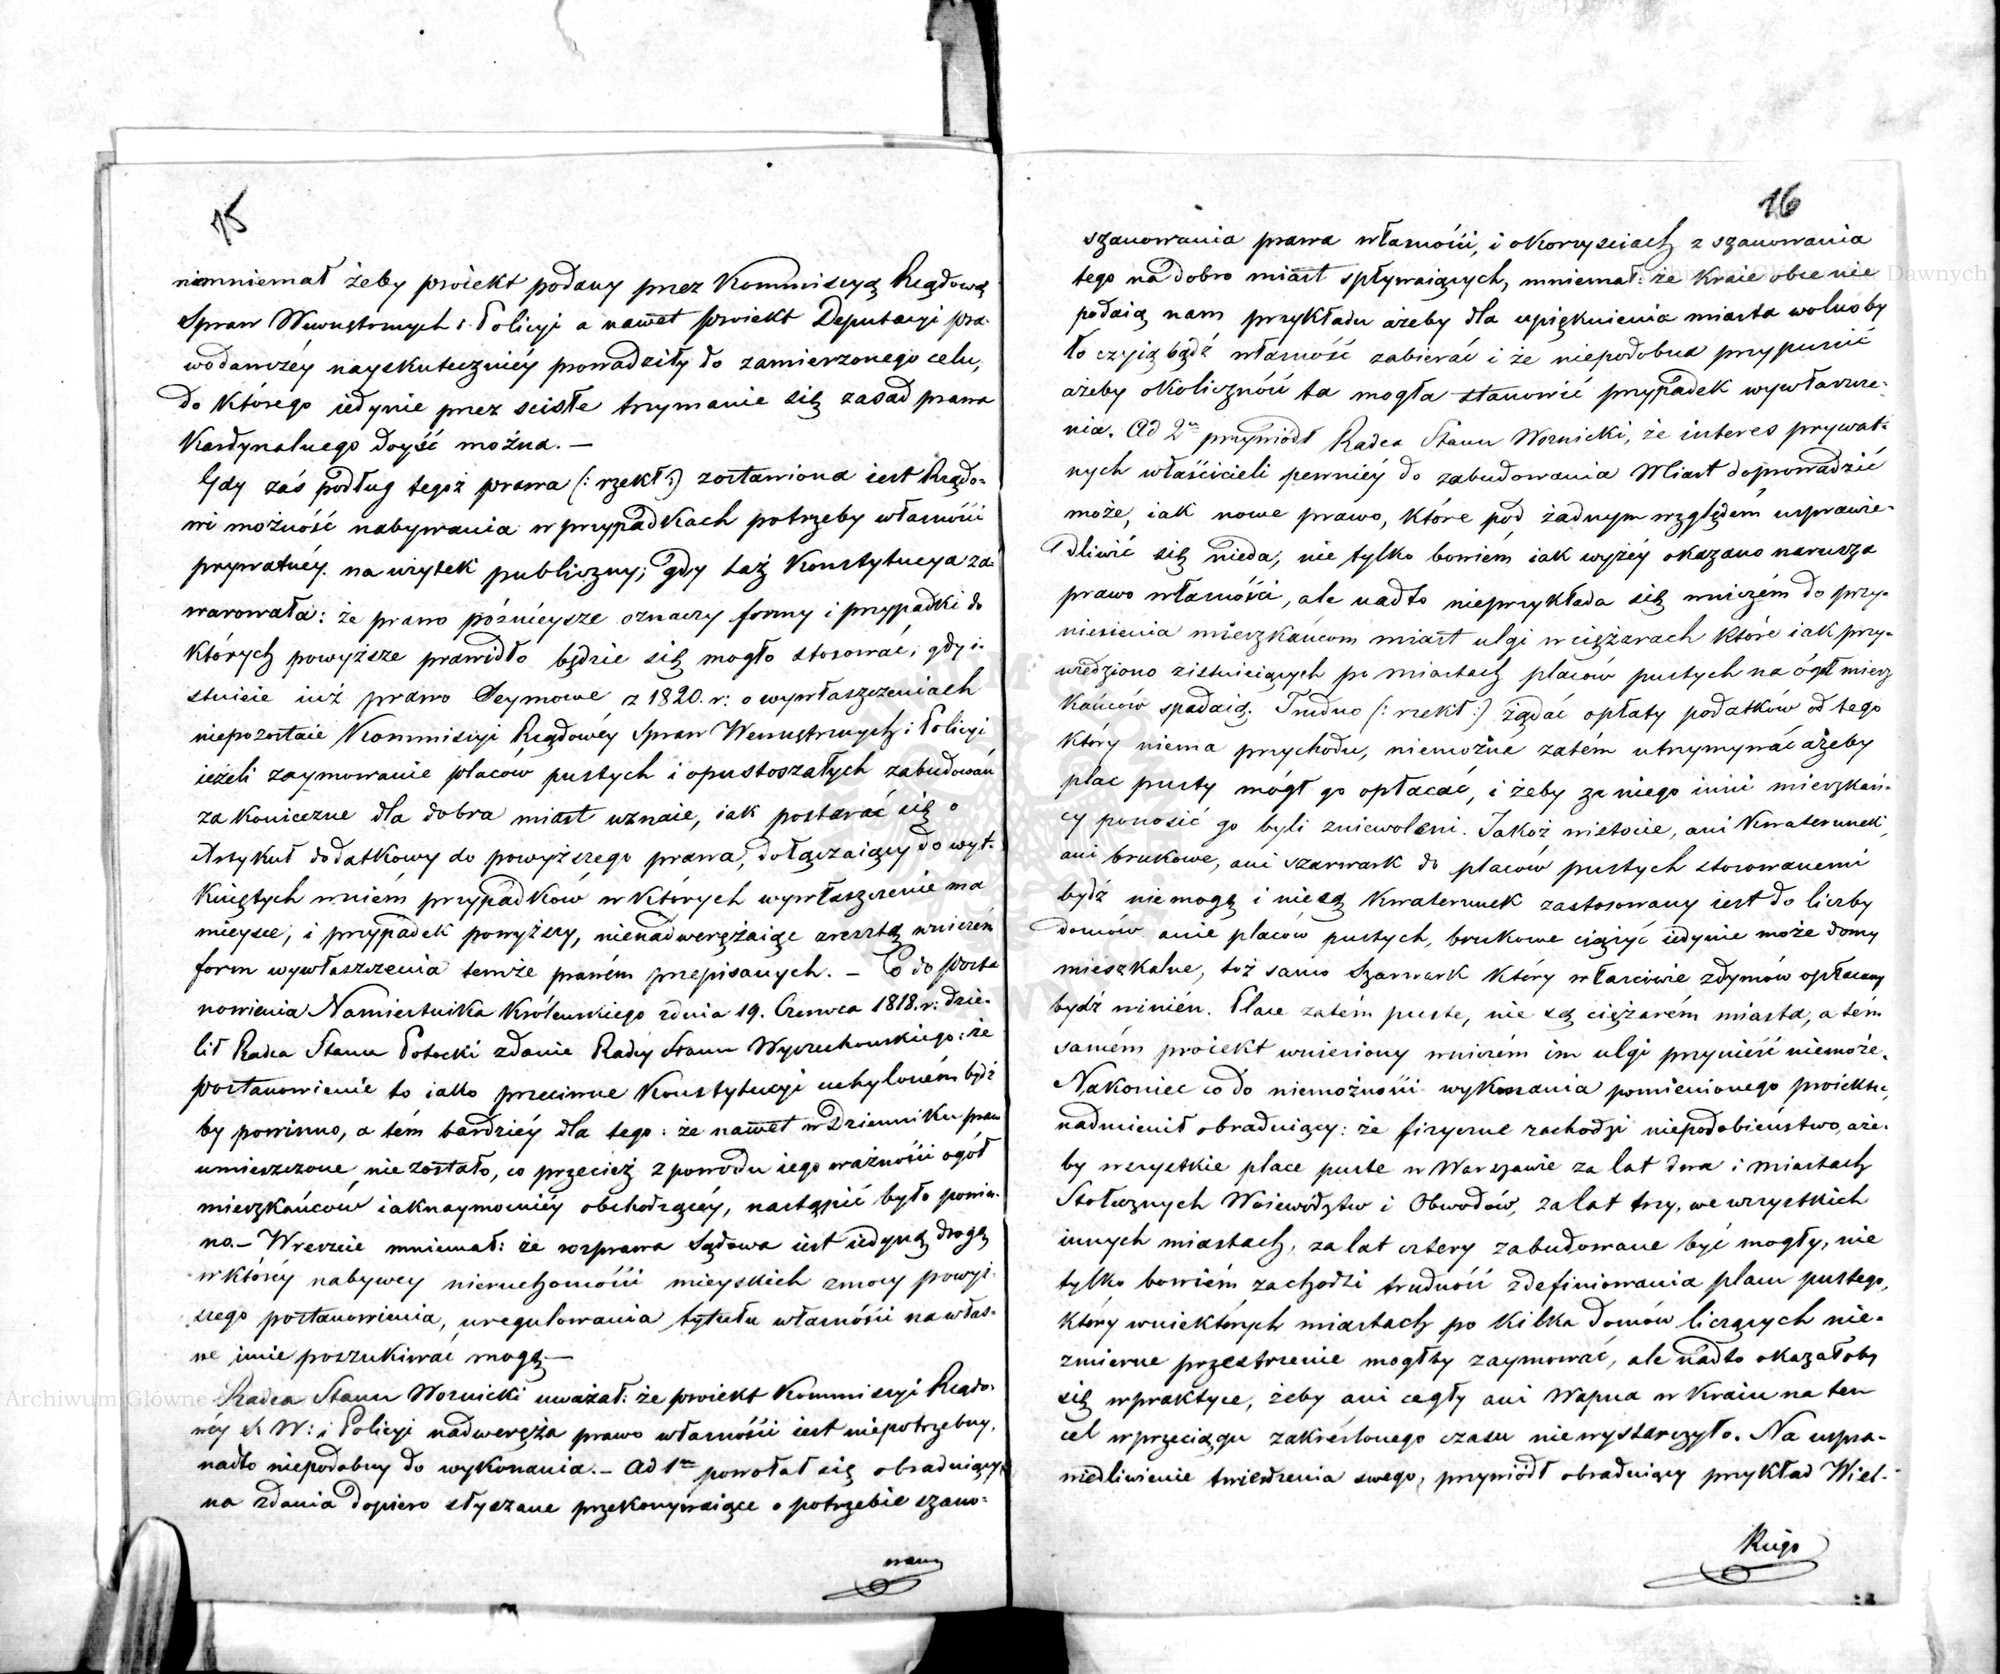 15
niemniemał żeby proiekt podany przez Kommissyą Rządową
Spraw Wewnętrznych i Policyi a nawet proiekt Deputacyi pra-
wodawczéy nayskuteczniéy prowadziły do zamierzonego celu,
do którego iedynie przez ścisłe trzymanie się zasad prawa
Kardynalnego doyść można. —
Gdy zaś podług tegoż prawa (: rzekł :) zostawiona iest Rządo-
wi możność nabywania w przypadkach potrzeby własności
prywatnéy na użytek publiczny; gdy taż Konstytucya za-
warowała: że prawo późnieysze oznaczy formy i przypadki do
których powyższe prawidło będzie się mogło stosować; gdy i-
stnieie iuż prawo Seymowe z 1820. r: o wywłaszczeniach
niepozostaie Kommissyi Rządowéy Spraw Wewnętrznych i Policyi
ieżeli zaymowanie placów pustych i opustoszałych zabudowań
za konieczne dla dobra miast uznaie, iak postarać się o
Artykuł dodatkowy do powyższego prawa, dołączaiący do wyt-
kniętych w niém przypadków w których wywłaszczenie ma
mieysce, i przypadek powyższy, nienadwerężaiąc zresztą w niczém
form wywłaszczenia temże prawém przepisanych. — Co do posta
nowienia Namiestnika Królewskiego z dnia 19. Czerwca 1818. r: dzie-
lił Radca Stanu Potocki zdanie Radcy Stanu Wyczechowskiego: że
postanowienie to iako przeciwne Konstytucyi uchyloném bydź
by powinno, a tém bardziéy dla tego: że nawet w Dzienniku praw
umieszczone nie zostało, co przecież z powodu iego ważności ogół
mieszkańców iaknaymocniéy obchodzącéy, nastąpić było powin-
no. — Wreszcie mniemał: że rozprawa Sądowa iest iedyną drogą
w któréy nabywcy nieruchomości mieyskich z mocy powyż-
szego postanowienia, uregulowania tytułu własności na włas-
ne imie poszukiwać mogą. —
Radca Stanu Woznicki uważał: że proiekt Kommissyi Rządo-
wéy S. W: i Policyi nadweręża prawo własności iest niepotrzebny,
nadto niepodobny do wykonania. — Ad 1m powołał się obraduiący
na zdania dopiero słyszane przekonywaiące o potrzebie szano-
wany
16
szanowania prawa własności, i o korzyściach z szanowania
tego na dobro miast spływaiących, mniemał: że kraie obce nie
podaią nam przykładu ażeby dla upięknienia miasta wolno by
ło czyią bądź własność zabierać i że niepodobna przypuścić
ażeby okoliczność ta mogła stanowić przypadek wywłaszcze-
nia. Ad 2m przywiódł Radca Stanu Woznicki, że interes prywat-
nych właścicieli pewniéy do zabudowania Miast doprowadzić
może, iak nowe prawo, które pod żadnym względém usprawie-
dliwić się nieda, nie tylko bowiem iak wyżéy okazano narusza
prawo własności, ale nadto nieprzykłada się w niczém do przy-
niesienia mieszkańcom miast ulgi w ciężarach które iak przy-
wiedziono z istnieiących po miastach placów pustych na ogół miesz
kańców spadaią. Trudno (: rzekł :) żądać opłaty podatków od tego
który niema przychodu, niemożna zatém utrzymywać ażeby
plac pusty mógł go opłacać, i żeby za niego inni mieszkań-
cy ponosić go byli zniewoleni. Jakoż w istocie, ani Kwaterunek,
ani brukowe, ani szarwark do placów pustych stosowanemi
bydź niemogą i nie są Kwaterunek zastosowany iest do liczby
domów a nie placów pustych, brukowe ciążyć iedynie może domy
mieszkalne, toż samo Szarwark który właściwie z dymów opłacany
bydź winién. Place zatém puste, nie są ciężarém miasta, a tém
samém proiekt wniesiony w niczém im ulgi przynieść niemoże.
Nakoniec co do niemożności wykonania pomienionego proiektu,
nadmienił obraduiący: że fizyczne zachodzi niepodobieństwo, aże-
by wszystkie place puste w Warszawie za lat dwa i miastach
Stołecznych Woiewództw i Obwodów, za lat trzy, we wszystkich
innych miastach, za lat cztery zabudowane być mogły, nie
tylko bowiém zachodzi trudność zdefiniowania placu pustego,
który w niektórych miastach po kilka domów liczących nie-
zmierne przestrzenie mogłby zaymować, ale nadto okazałoby
się w praktyce, żeby ani cegły ani Wapna w Kraiu na ten
cel w przeciągu zakreślonego czasu niewystarczyło. Na uspra-
wiedliwienie twierdzenia swego, przywiódł obraduiący przykład Wiel-
kiego